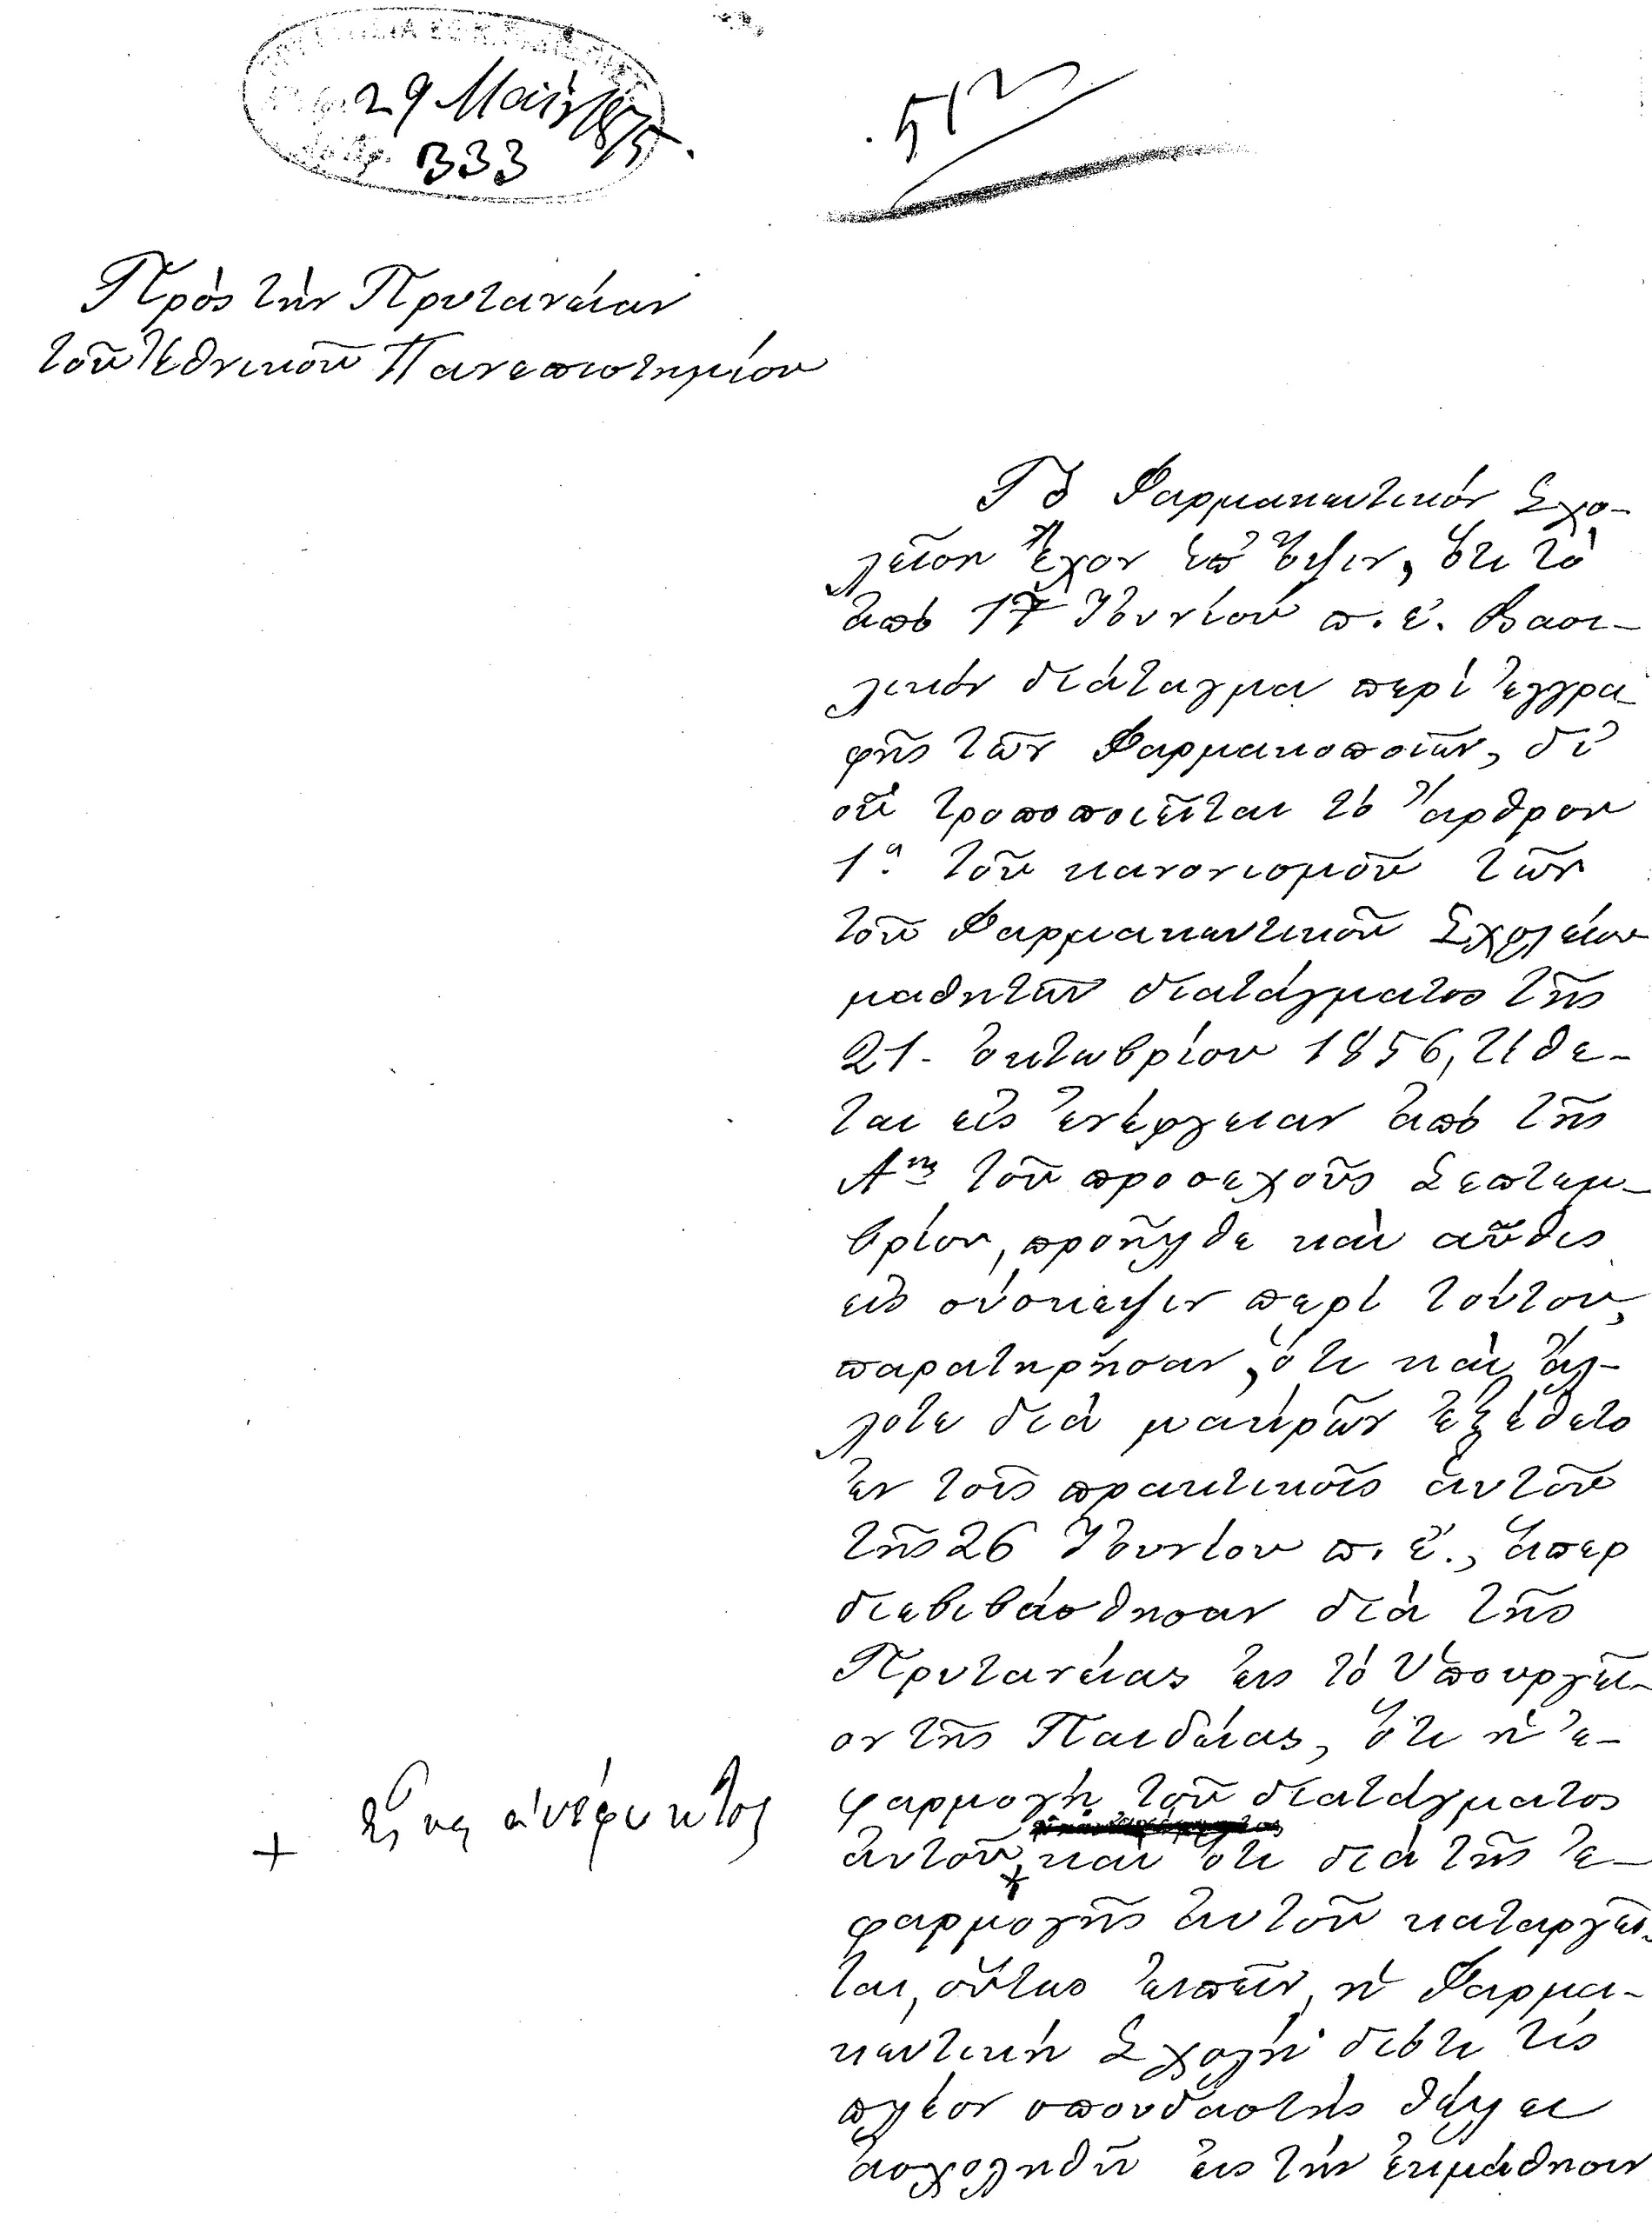 29 Μαΐου 1875.
333
512
Πρὸς τὴν Πρυτανείαν
τοῦ Ἐθνικοῦ Πανεπιστημίου
Τὸ Φαρμακευτικόν Σχο-
λεῖον ἔχον ὑπ' ὄψιν, ὅτι τὸ
ἀπό 17 Ἰουνίου π. ἔ. Βασι-
λικόν διάταγμα περί ἐγγρα-
φῆς τῶν Φαρμακοποιῶν, δι'
οὗ τροποποιεῖται τό ἄρθρον
1ον τοῦ κανονισμοῦ τῶν
τοῦ Φαρμακευτικοῦ Σχολείου
μαθητῶν διατάγματος τῆς
21. Ὀκτωβρίου 1856, τίθε-
ται εἰς ἐνέργειαν ἀπό τῆς
Αης τοῦ προσεχοῦς Σεπτεμ-
βρίου, προῆλθε καὶ αὖθις
εἰς σύσκεψιν περί τούτου,
παρατηρῆσαν, ὅτι καὶ ἄλ-
λοτε διά μακρῶν ἐξέθετο
ἐν τοῖς πρακτικοῖς αὐτοῦ
τῆς 26 Ἰουνίου π. ἔ., ἅπερ
διεβιβάσθησαν διά τῆς
Πρυτανείας εἰς τό Ὑπουργεῖ-
ον τῆς Παιδείας, ὅτι ἡ ἐ-
φαρμογή τοῦ διατάγματος
+ εἶναι ἀνέφικτος
αὐτοῦ + καὶ ὅτι διά τῆς ἐ-
φαρμογῆς αὐτοῦ καταργεῖ-
ται, οὕτως εἰπεῖν, ἡ Φαρμα-
κευτική Σχολή· διότι τίς
πλέον σπουδαστής θέλει
ἀσχοληθῆ εἰς τήν ἐκμάθησιν